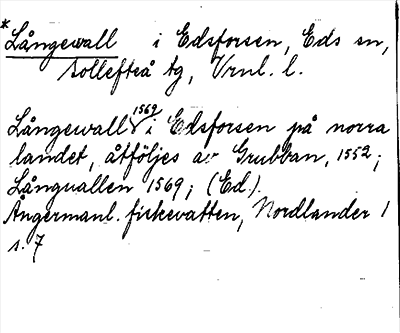 *Långewall i Edsforsen, Eds sn,
Sollefteå tg, Vrnl. l.
1569
Långewall i Edsforsen på norra
landet, åtföljes av Grubban, 1552;
Långuallen 1569; (Ed.).
Ångermanl. fiskevatten, Nordlander 1
s. 7